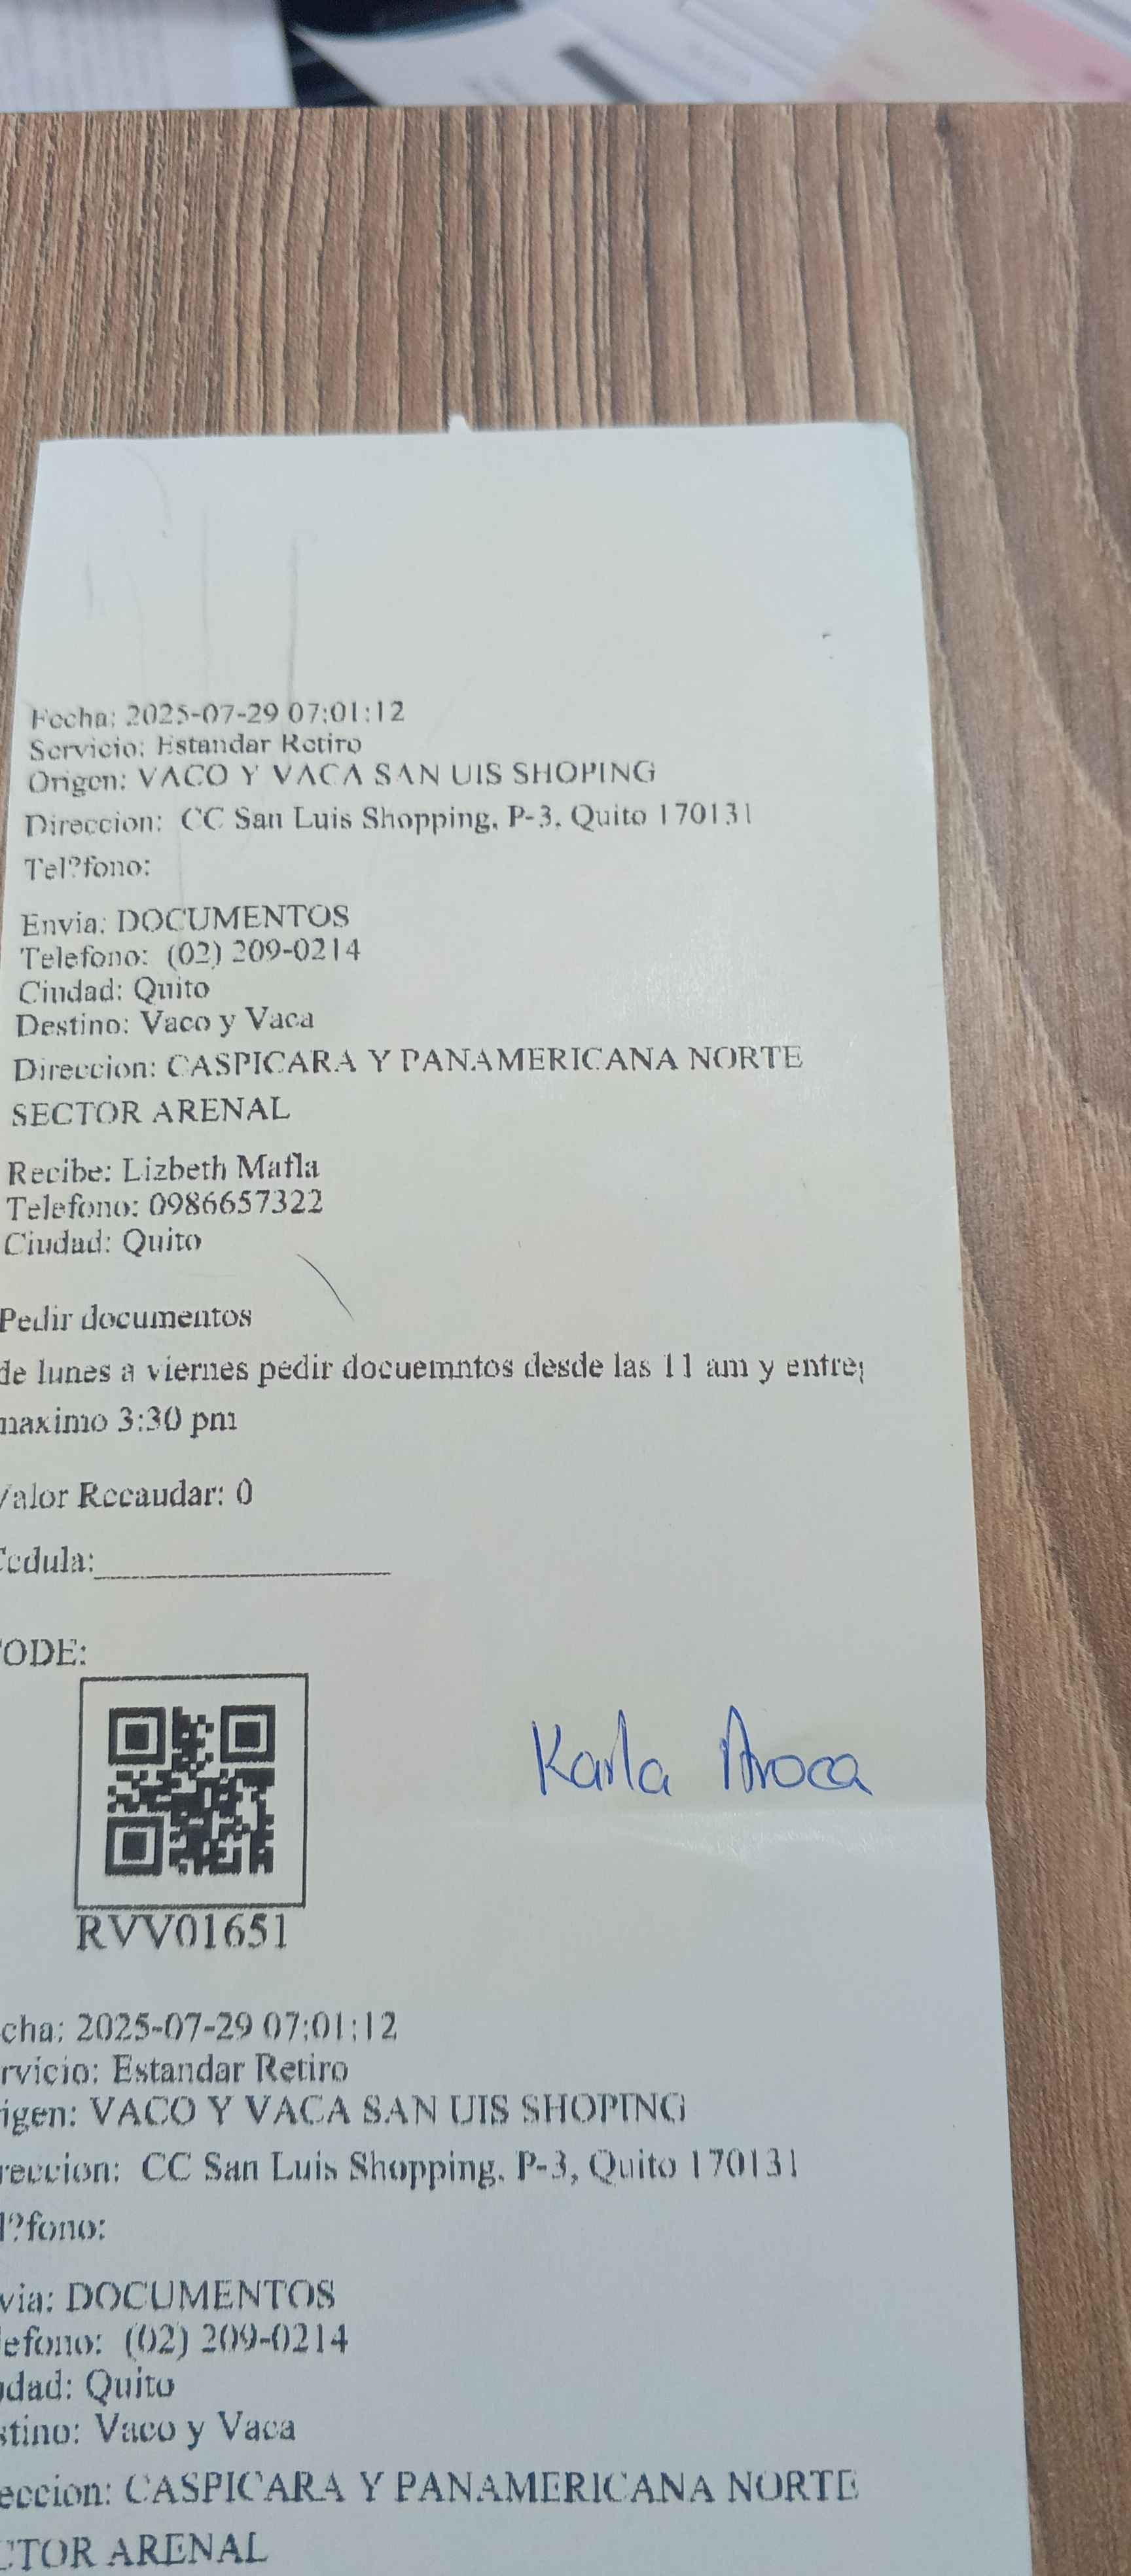 Fecha: 2025-07-29 07:01:12
Servicio: Estandar Retiro
Origen: VACO Y VACA SAN UIS SHOPING
Direccion: CC San Luis Shopping, P-3, Quito 170131
Tel?fono:
Envia: DOCUMENTOS
Telefono: (02) 209-0214
Ciudad: Quito
Destino: Vaco y Vaca
Direccion: CASPICARA Y PANAMERICANA NORTE
SECTOR ARENAL
Recibe: Lizbeth Mafla
Telefono: 0986657322
Ciudad: Quito
Pedir documentos
de lunes a viernes pedir docuemntos desde las 11 am y entreg
maximo 3:30 pm
Valor Recaudar: 0
Cedula:
ODE:
Karla Aroca
RVV01651
cha: 2025-07-29 07:01:12
rvicio: Estandar Retiro
igen: VACO Y VACA SAN UIS SHOPING
reccion: CC San Luis Shopping, P-3, Quito 170131
l?fono:
via: DOCUMENTOS
efono: (02) 209-0214
dad: Quito
stino: Vaco y Vaca
eccion: CASPICARA Y PANAMERICANA NORTE
CTOR ARENAL